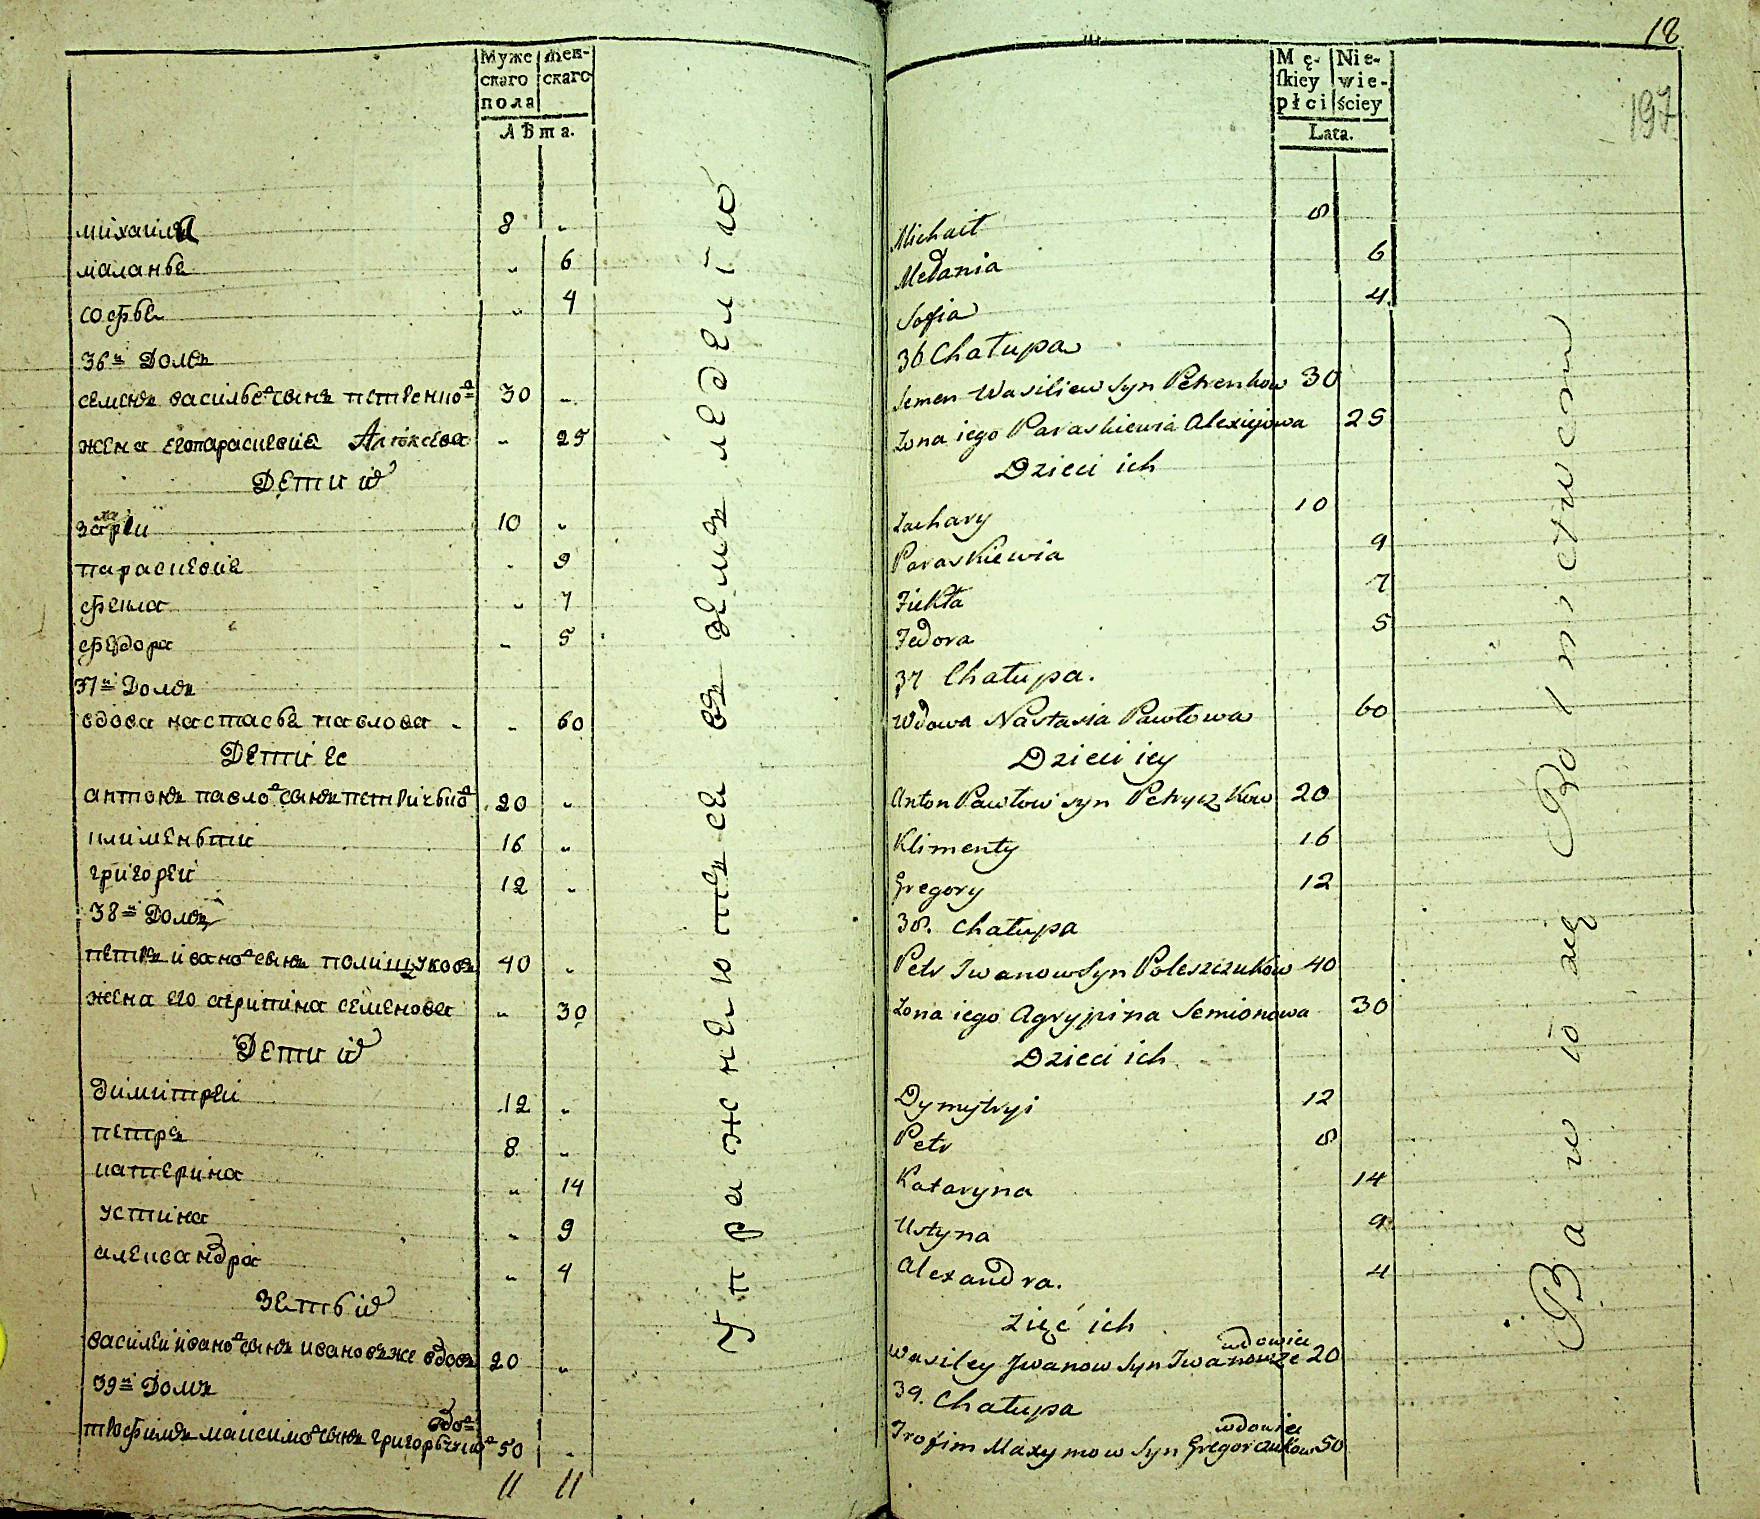 Муже
скаго
пола
Жен-
скаго
Лѣта.
михаила 8 „
маланьѣ „ 6
софьѣ „ 4
36й Домъ
семенъ васильевъ сынъ петренковъ 30 „
жена его параскевиѣ Алексѣева „ 25
Дети их
захреи 10 „
параскевиѣ „ 9
фекла „ 7
федора „ 5
37й Домъ
вдова настасьѣ павлова „ 60
Дети ее
антонъ павловъ сынъ петричковъ 20 „
клименьтий 16 „
григорей 12 „
38й Домъ
петръ ивановъ сынъ полищуковъ 40 „
жена его агрипина семенова „ 30
Дети их
димитрей 12 „
петръ 8 „
катерина „ 14
устина „ 9
александра „ 4
Зеть их
василей ивановъ сынъ ивановъ же вдовъ 20 „
39й Домъ
вдовъ
трофимъ максимовъ сынъ григорьчуковъ 50 „
11 11
Упражнеютъса въ земледелiю
18
197
Mę-
skiey
płci
Nie-
wie-
ściey
Lata.
Michaił 8
Mełania 6
Sofia 4
36 Chałupa
Semen Wasiliew Syn Petrenkow 30
Zona iego Paraskiewia Alexiejowa 25
Dzieci ich
Zachary 10
Paraskiewia 9
Fiekła 7
Fedora 5
37 Chałupa.
Wdowa Nastasia Pawłowa 60
Dzieci iey
Anton Pawłow syn Petryczkow 20
Klimenty 16
Gregory 12
38. Chałupa
Petr Iwanow Syn Poleszczuków 40
Zona iego Agrypina Semionowa 30
Dzieci ich
Dymytryi 12
Petr 8
Kataryna 14
Ustyna 9
Alexandra. 4
Zięć ich
wdowiec
Wasiley Iwanow Syn Iwanowże 20
39. Chałupa
wdowiec
Trofim Maxymow Syn Gregorczukow 50
Bawią się Rolnictwem